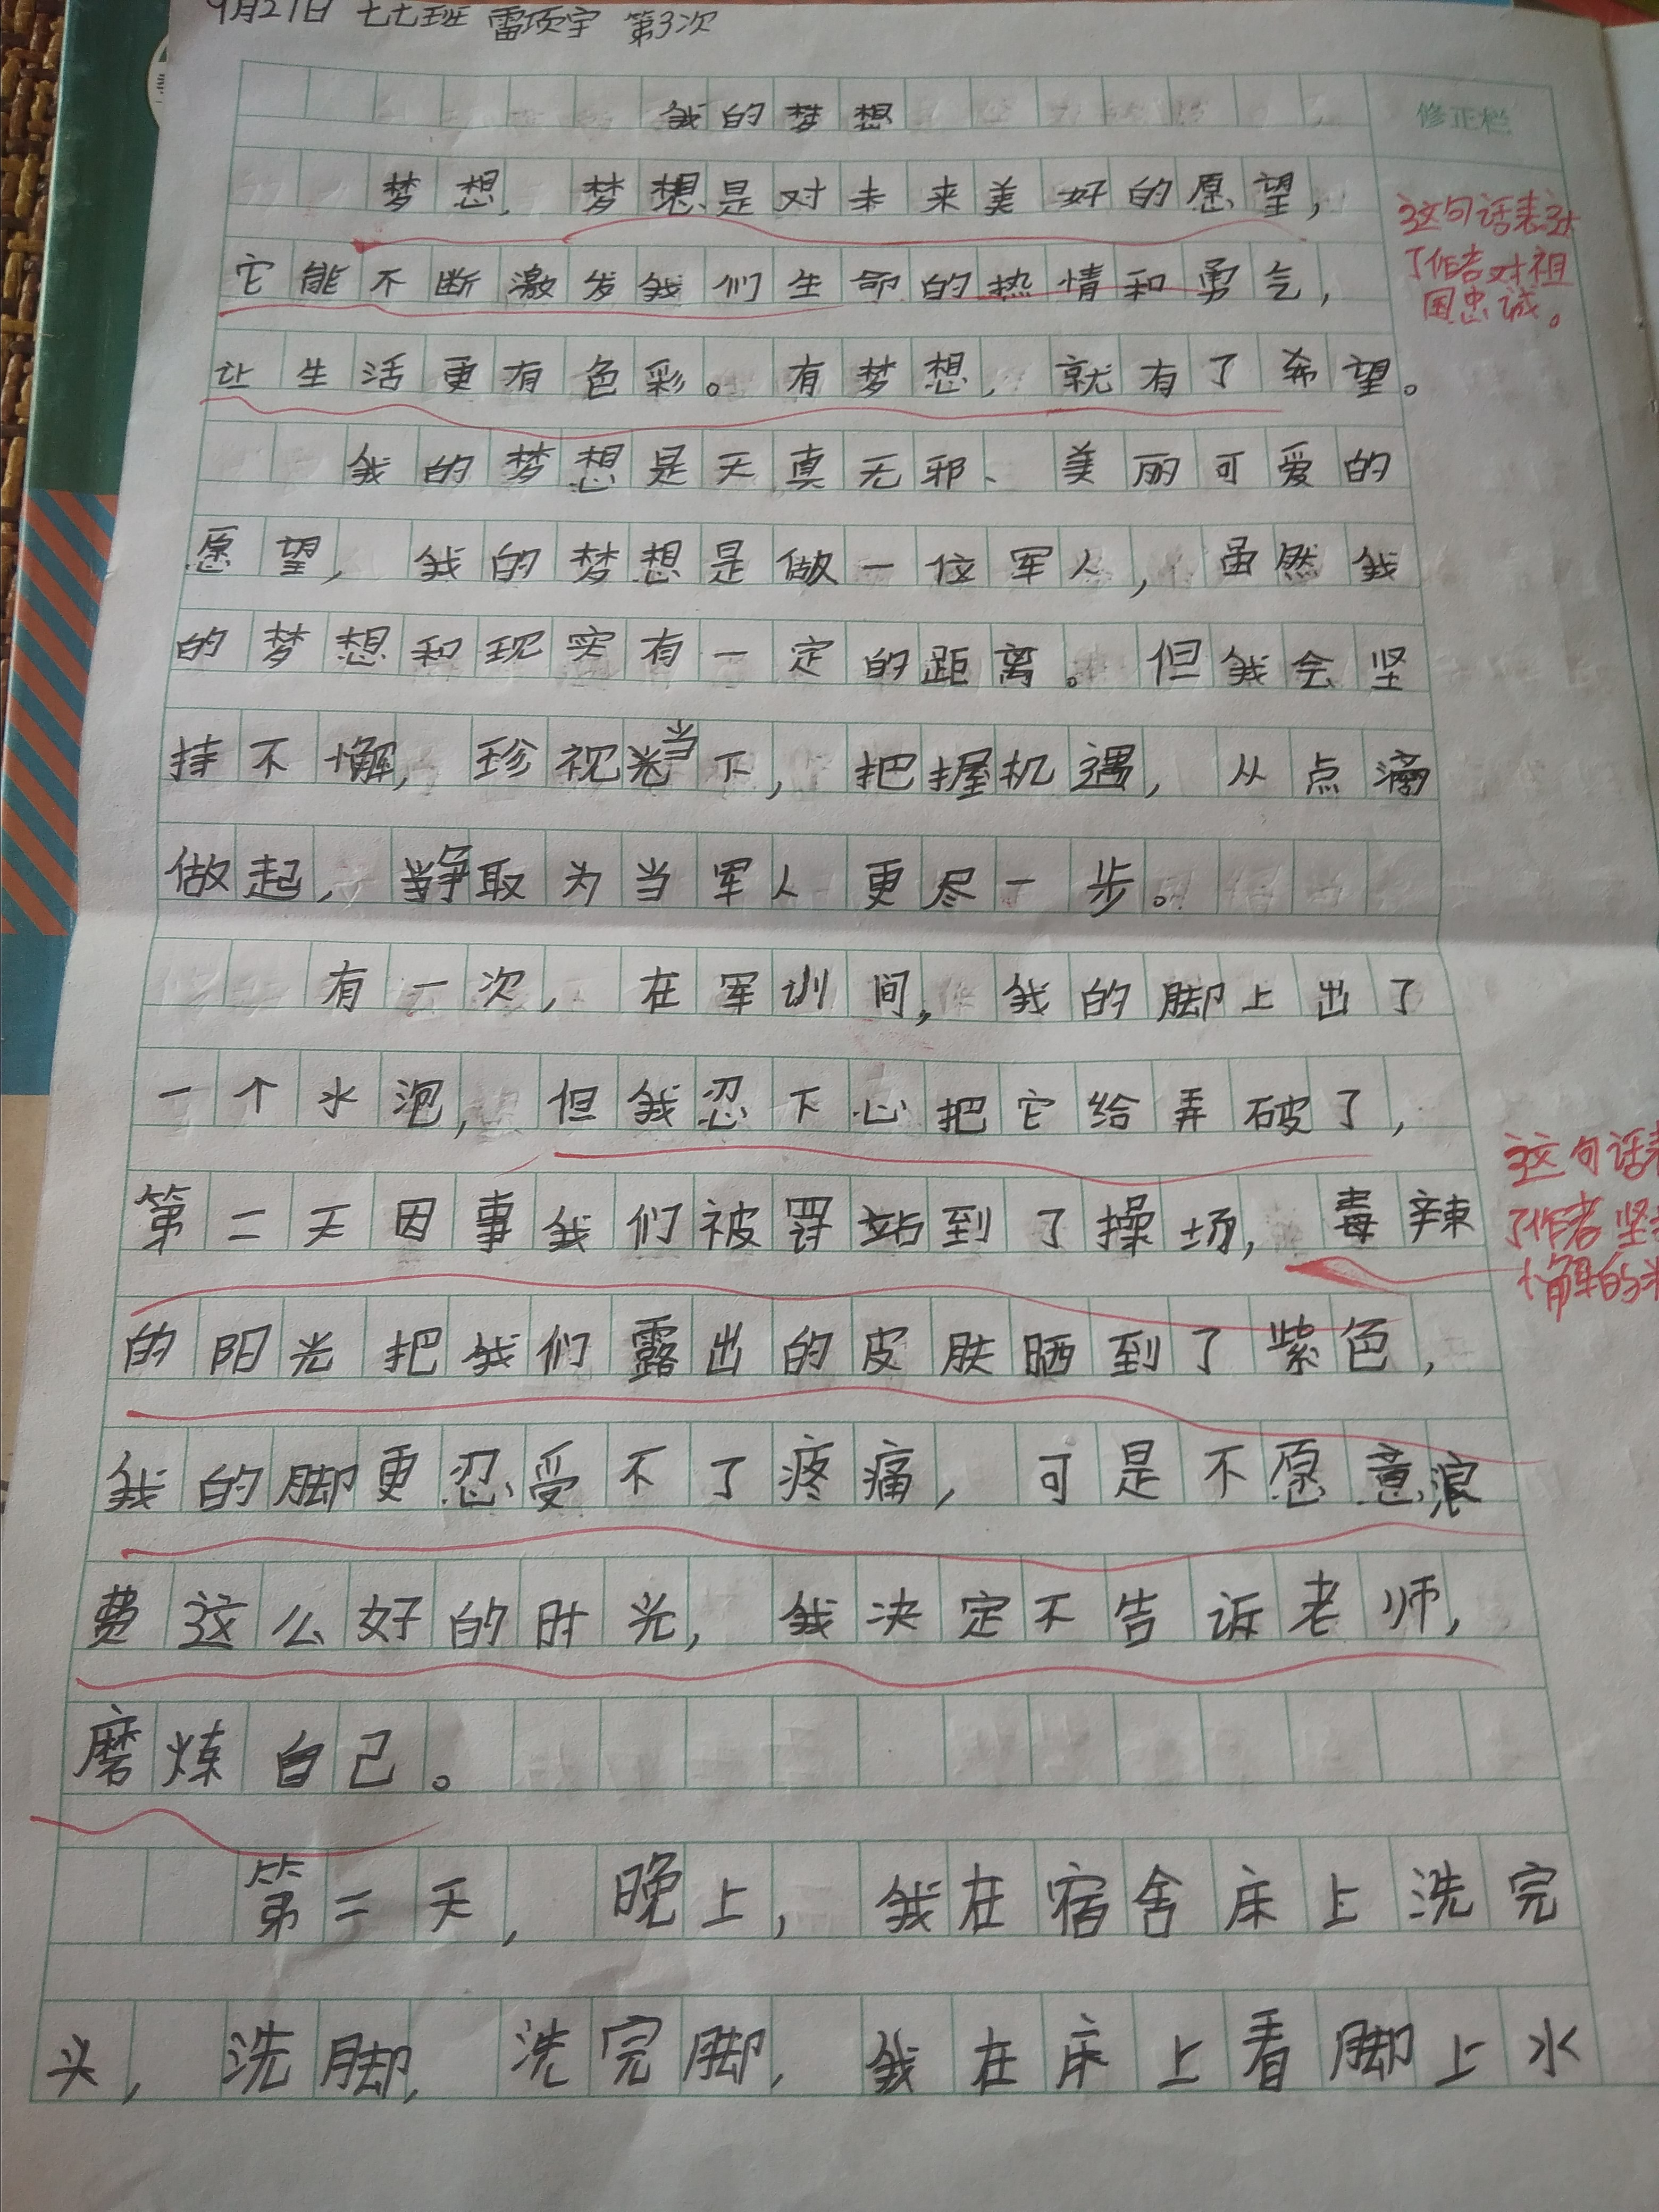 9月27日 七七班 雷项宇 第3次
我的梦想
修正栏
梦想，梦想是对未来美好的愿望，
它能不断激发我们生命的热情和勇气，
让生活更有色彩。有梦想，就有了希望。
这句话表达
了作者对祖
国忠诚。
我的梦想是天真无邪、美丽可爱的
愿望，我的梦想是做一位军人，虽然我
的梦想和现实有一定的距离。但我会坚
持不懈，珍视当下，把握机遇，从点滴
做起，争取为当军人更尽一步。
有一次，在军训间，我的脚上出了
一个水泡，但我忍下心把它给弄破了，
第二天因事我们被罚站到了操场，毒辣
的阳光把我们露出的皮肤晒到了紫色，
我的脚更忍受不了疼痛，可是不愿意浪
费这么好的时光，我决定不告诉老师，
磨炼自己。
这句话表
了作者坚
懈的
第二天，晚上，我在宿舍床上洗完
头，洗脚，洗完脚，我在床上看脚上水